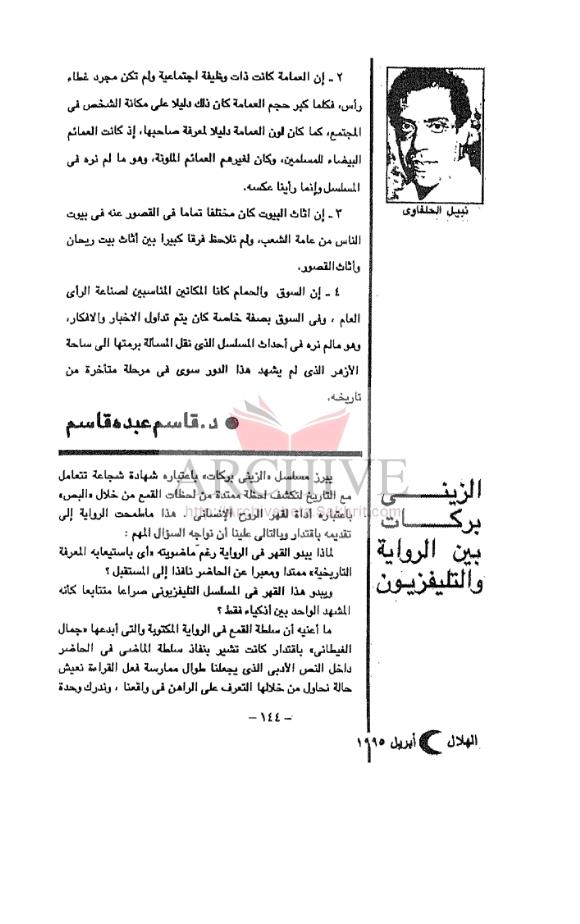 ٢ ـ إن العمامة كانت ذات وظيفة اجتماعية ولم تكن مجرد غطاء
رأس، فكلما كبر حجم العمامة كان ذلك دليلا على مكانة الشخص فى
المجتمع، كما كان لون العمامة دليلا لمعرفة صاحبها، إذ كانت العمائم
البيضاء للمسلمين، وكان لغيرهم العمائم الملونة، وهو ما لم نره فى
المسلسل وإنما رأينا عكسه.
٣ ـ إن اثاث البيوت كان مختلفا تماما فى القصور عنه فى بيوت
الناس من عامة الشعب، ولم نلاحظ فرقا كبيرا بين أثاث بيت ريحان
وأثاث القصور.
٤ ـ إن السوق والحمام كانا المكانين المناسبين لصناعة الرأى
العام ، وفى السوق بصفة خاصة كان يتم تداول الاخبار والافكار،
وهو مالم نره فى أحداث المسلسل الذى نقل المسألة برمتها الى ساحة
الأزهر الذى لم يشهد هذا الدور سوى فى مرحلة متأخرة من
تاريخه.
● د. قاسم عبده قاسم
نبيل الحلفاوى
الزينى
بركات
بين الرواية
والتليفزيون
يبرز مسلسل «الزينى بركات» باعتباره شهادة شجاعة تتعامل
مع التاريخ لتكشف لحظة ممتدة من لحظات القمع من خلال «البص»
باعتباره أداة لقهر الروح الإنسانى. هذا ماطمحت الرواية إلى
تقديمه باقتدار وبالتالى علينا أن نواجه السؤال المهم :
لماذا يبدو القهر فى الرواية رغم ماضويته «أى باستيعابه المعرفة
التاريخية» ممتدا ومعبرا عن الحاضر نافذا إلى المستقبل ؟
ويبدو هذا القهر فى المسلسل التليفزيونى صراعا متتابعا كأنه
المشهد الواحد بين أذكياء فقط ؟
ما أعنيه أن سلطة القمع فى الرواية المكتوبة والتى أبدعها «جمال
الغيطانى» باقتدار كانت تشير بنفاذ سلطة الماضى فى الحاضر
داخل النص الأدبى الذى يجعلنا طوال ممارسة فعل القراءة نعيش
حالة نحاول من خلالها التعرف على الراهن فى واقعنا ، وندرك وحدة
ـ ١٤٤ ـ
الهلال أبريل ١٩٩٥
ARCHIVE